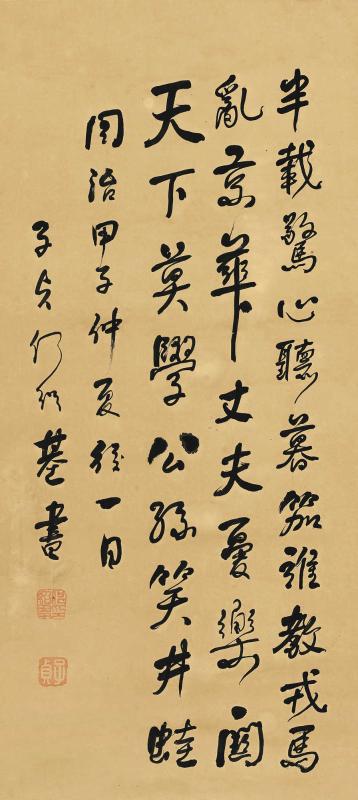 半載驚心聽暮笳誰教戎馬
亂京華丈夫憂樂關
天下莫學公孫笑井蛙
同治甲子仲夏後一日
子貞何紹基書
子貞